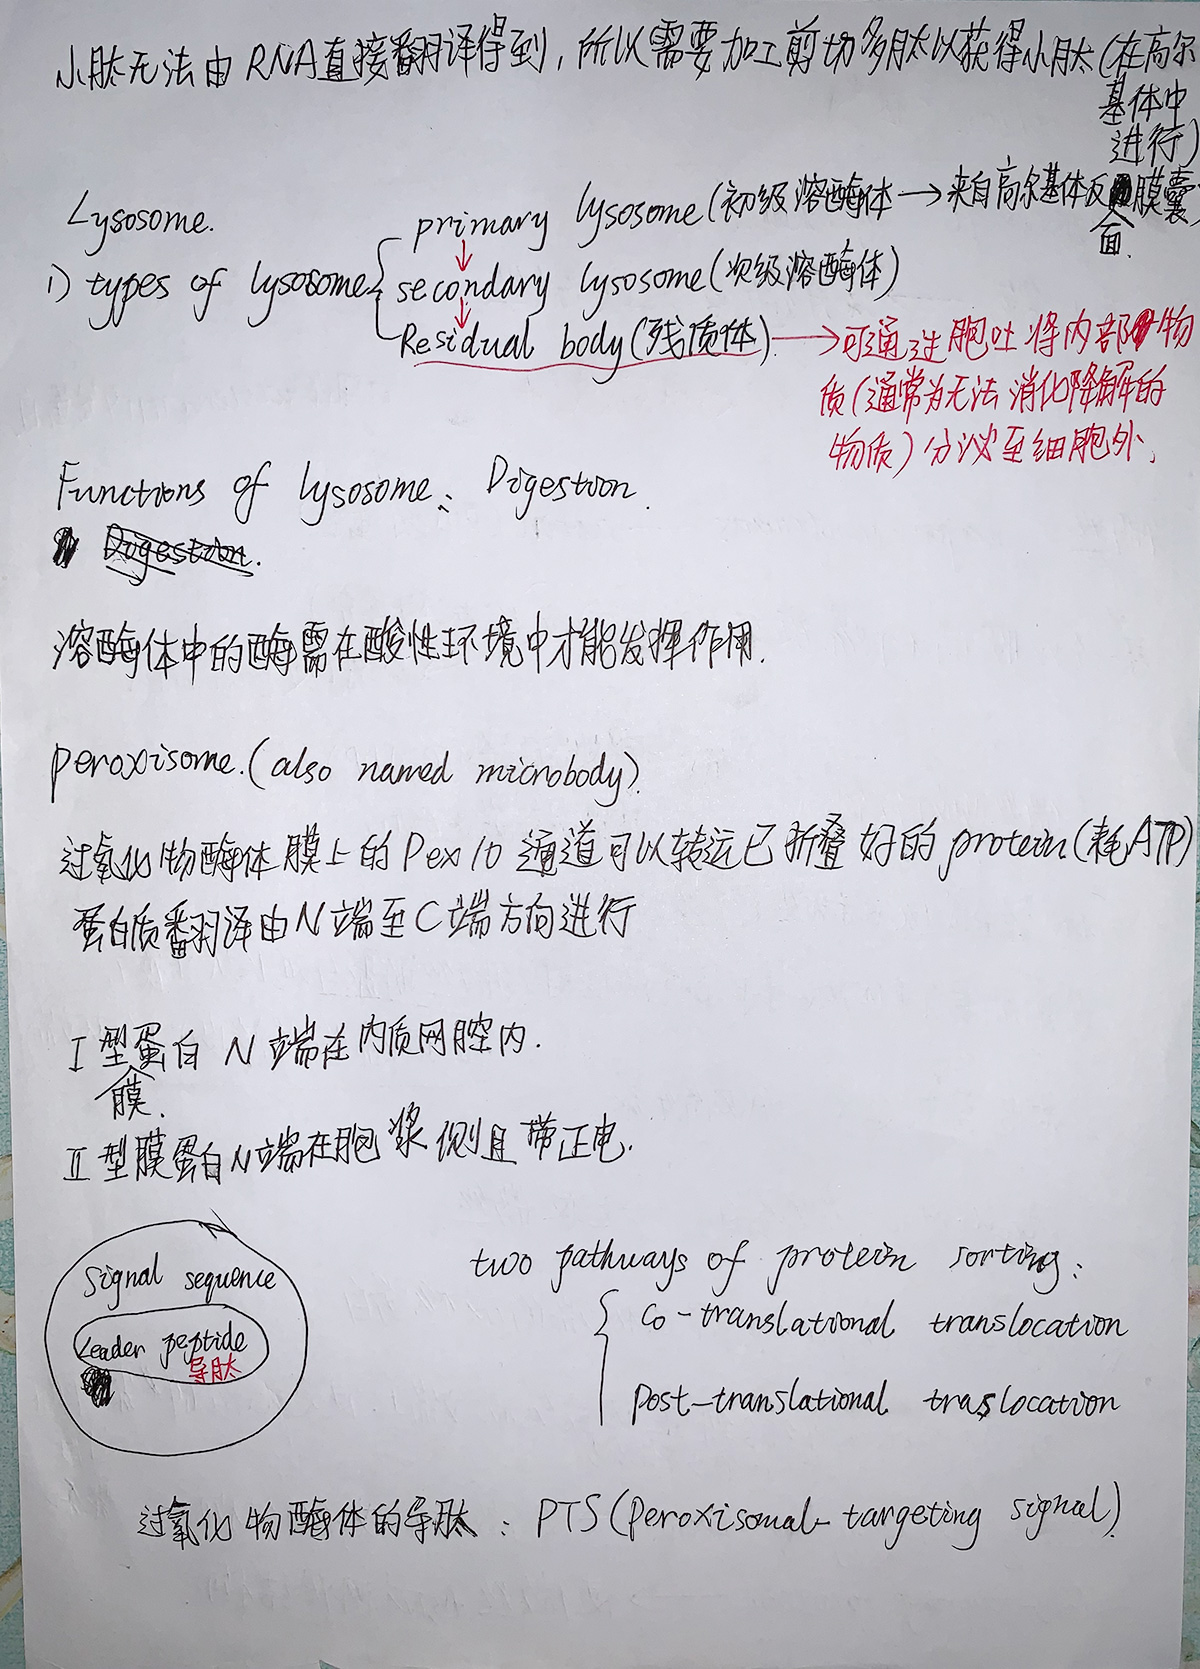 小肽无法由RNA直接翻译得到,所以需要加工剪切多肽以获得小肽(在高尔
基体中
进行)
Lysosome.
primary lysosome(初级溶酶体→来自高尔基体反面膜囊)
1) types of lysosome
secondary lysosome(次级溶酶体)
Residual body(残质体)→可通过胞吐将内部物
质(通常为无法消化降解的
物质)分泌至细胞外.
Functions of lysosome: Digestion.
Digestion.
溶酶体中的酶需在酸性环境中才能发挥作用.
peroxisome.(also named microbody).
过氧化物酶体膜上的Pex10通道可以转运已折叠好的protein(耗ATP)
蛋白质翻译由N端至C端方向进行
I型膜蛋白N端在内质网腔内.
II型膜蛋白N端在胞浆侧且带正电.
Signal sequence
Leader peptide
导肽
two pathways of protein sorting:
co-translational translocation
post-translational traslocation
过氧化物酶体的导肽: PTS(Peroxisomal targeting signal).